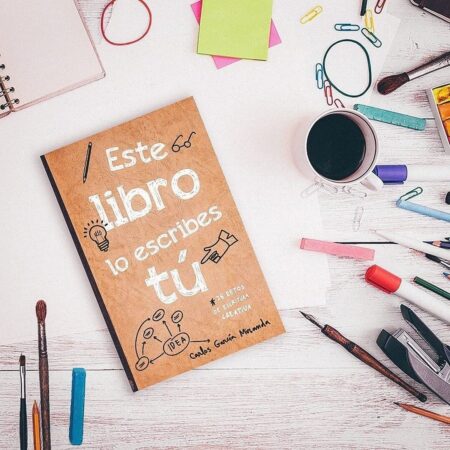 Este
libro
lo escribes
tú
RETOS
DE ESCRITURA
CREATIVA
IDEA
Carlos García Miranda